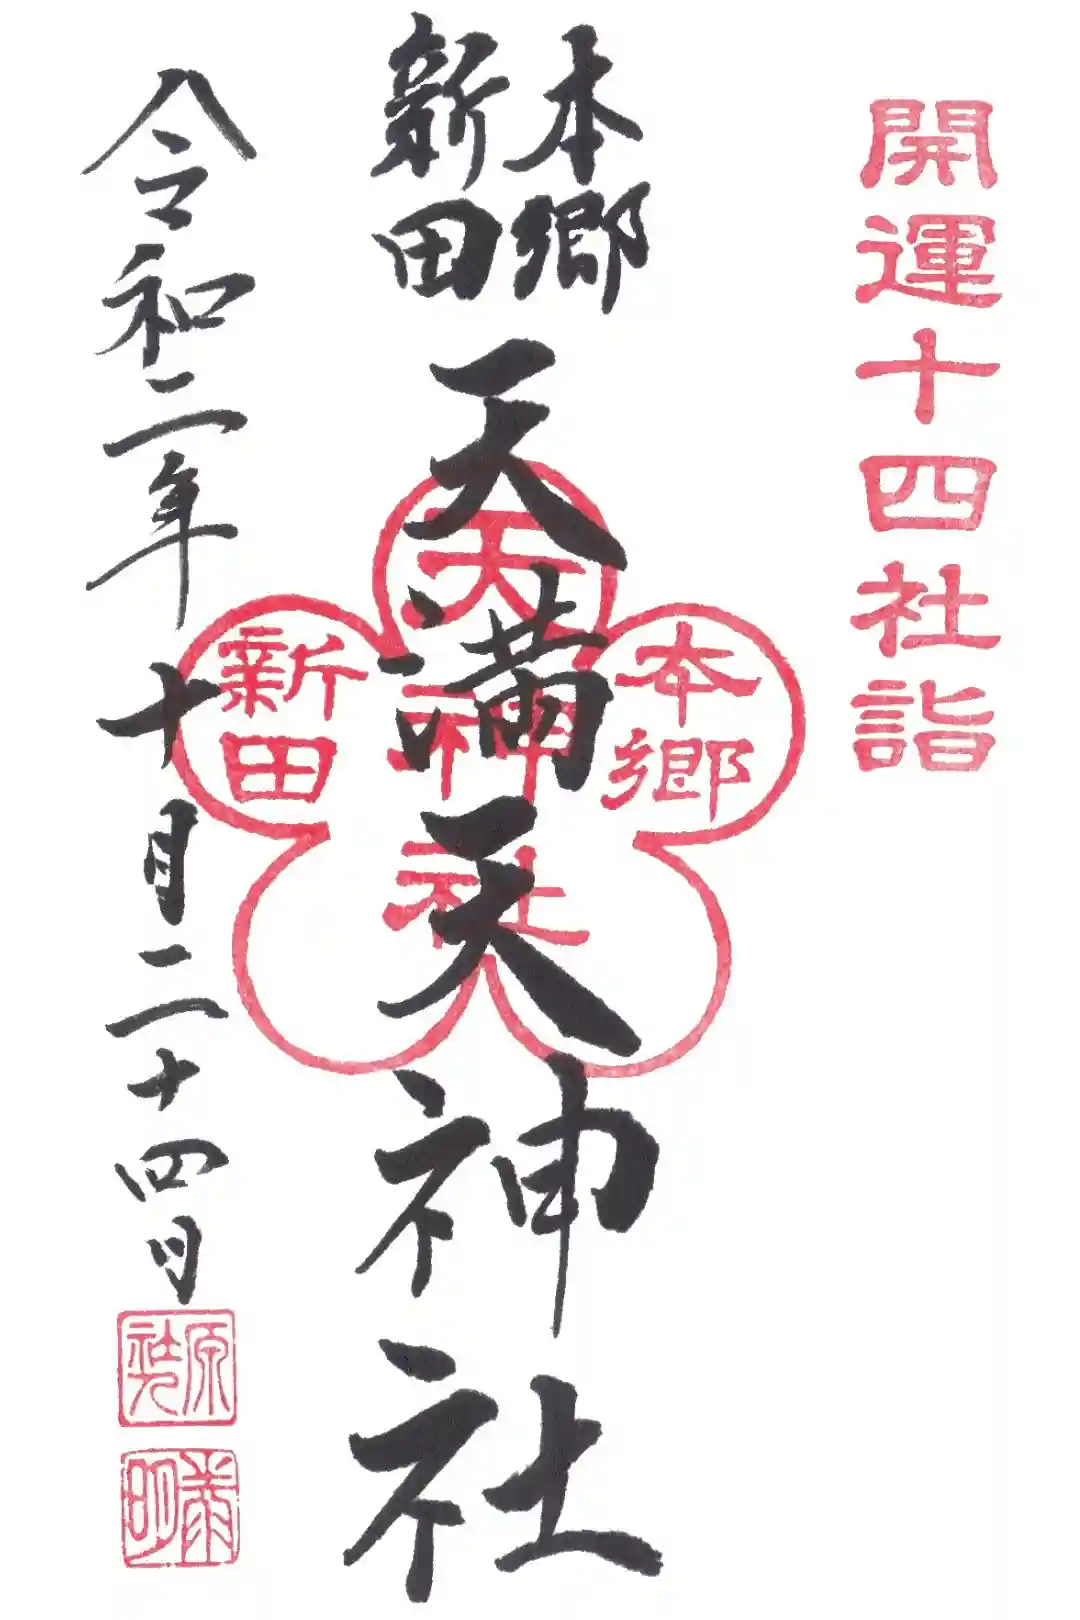 開運十四社詣
本郷
新田
天満天神社
本郷
天神社
新田
令和二年十月二十四日